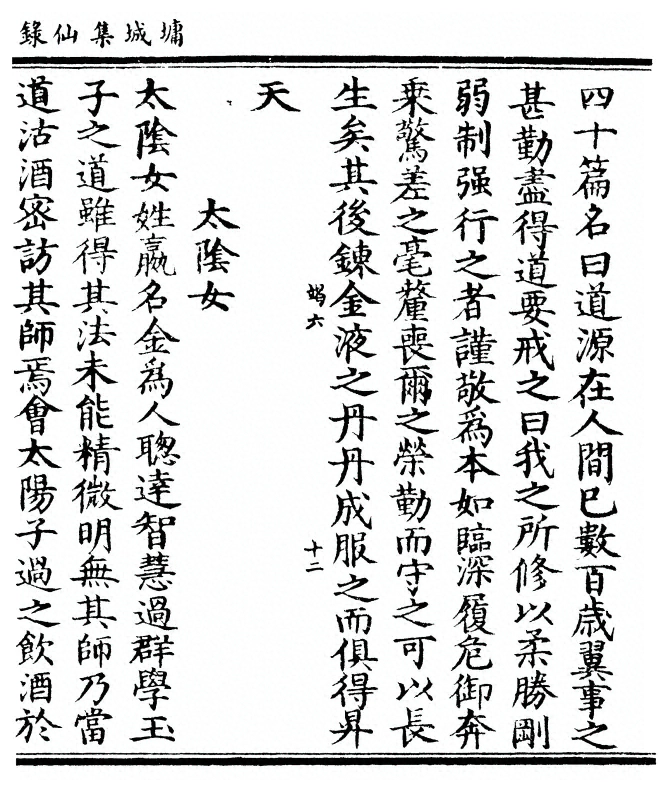 墉城集仙錄
四十篇名曰道源在人間已數百歲翼事之
甚勤盡得道要戒之曰我之所修以柔勝剛
弱制强行之者謹敬爲本如臨深履危御奔
乗驚差之毫釐喪爾之榮勤而守之可以長
生矣其後鍊金液之丹丹成服之而俱得昇
天
竭六
十二
太陰女
太陰女姓嬴名金爲人聦達智慧過群學玉
子之道雖得其法未能精微明無其師乃當
道沽酒密訪其師焉會太陽子過之飲酒於